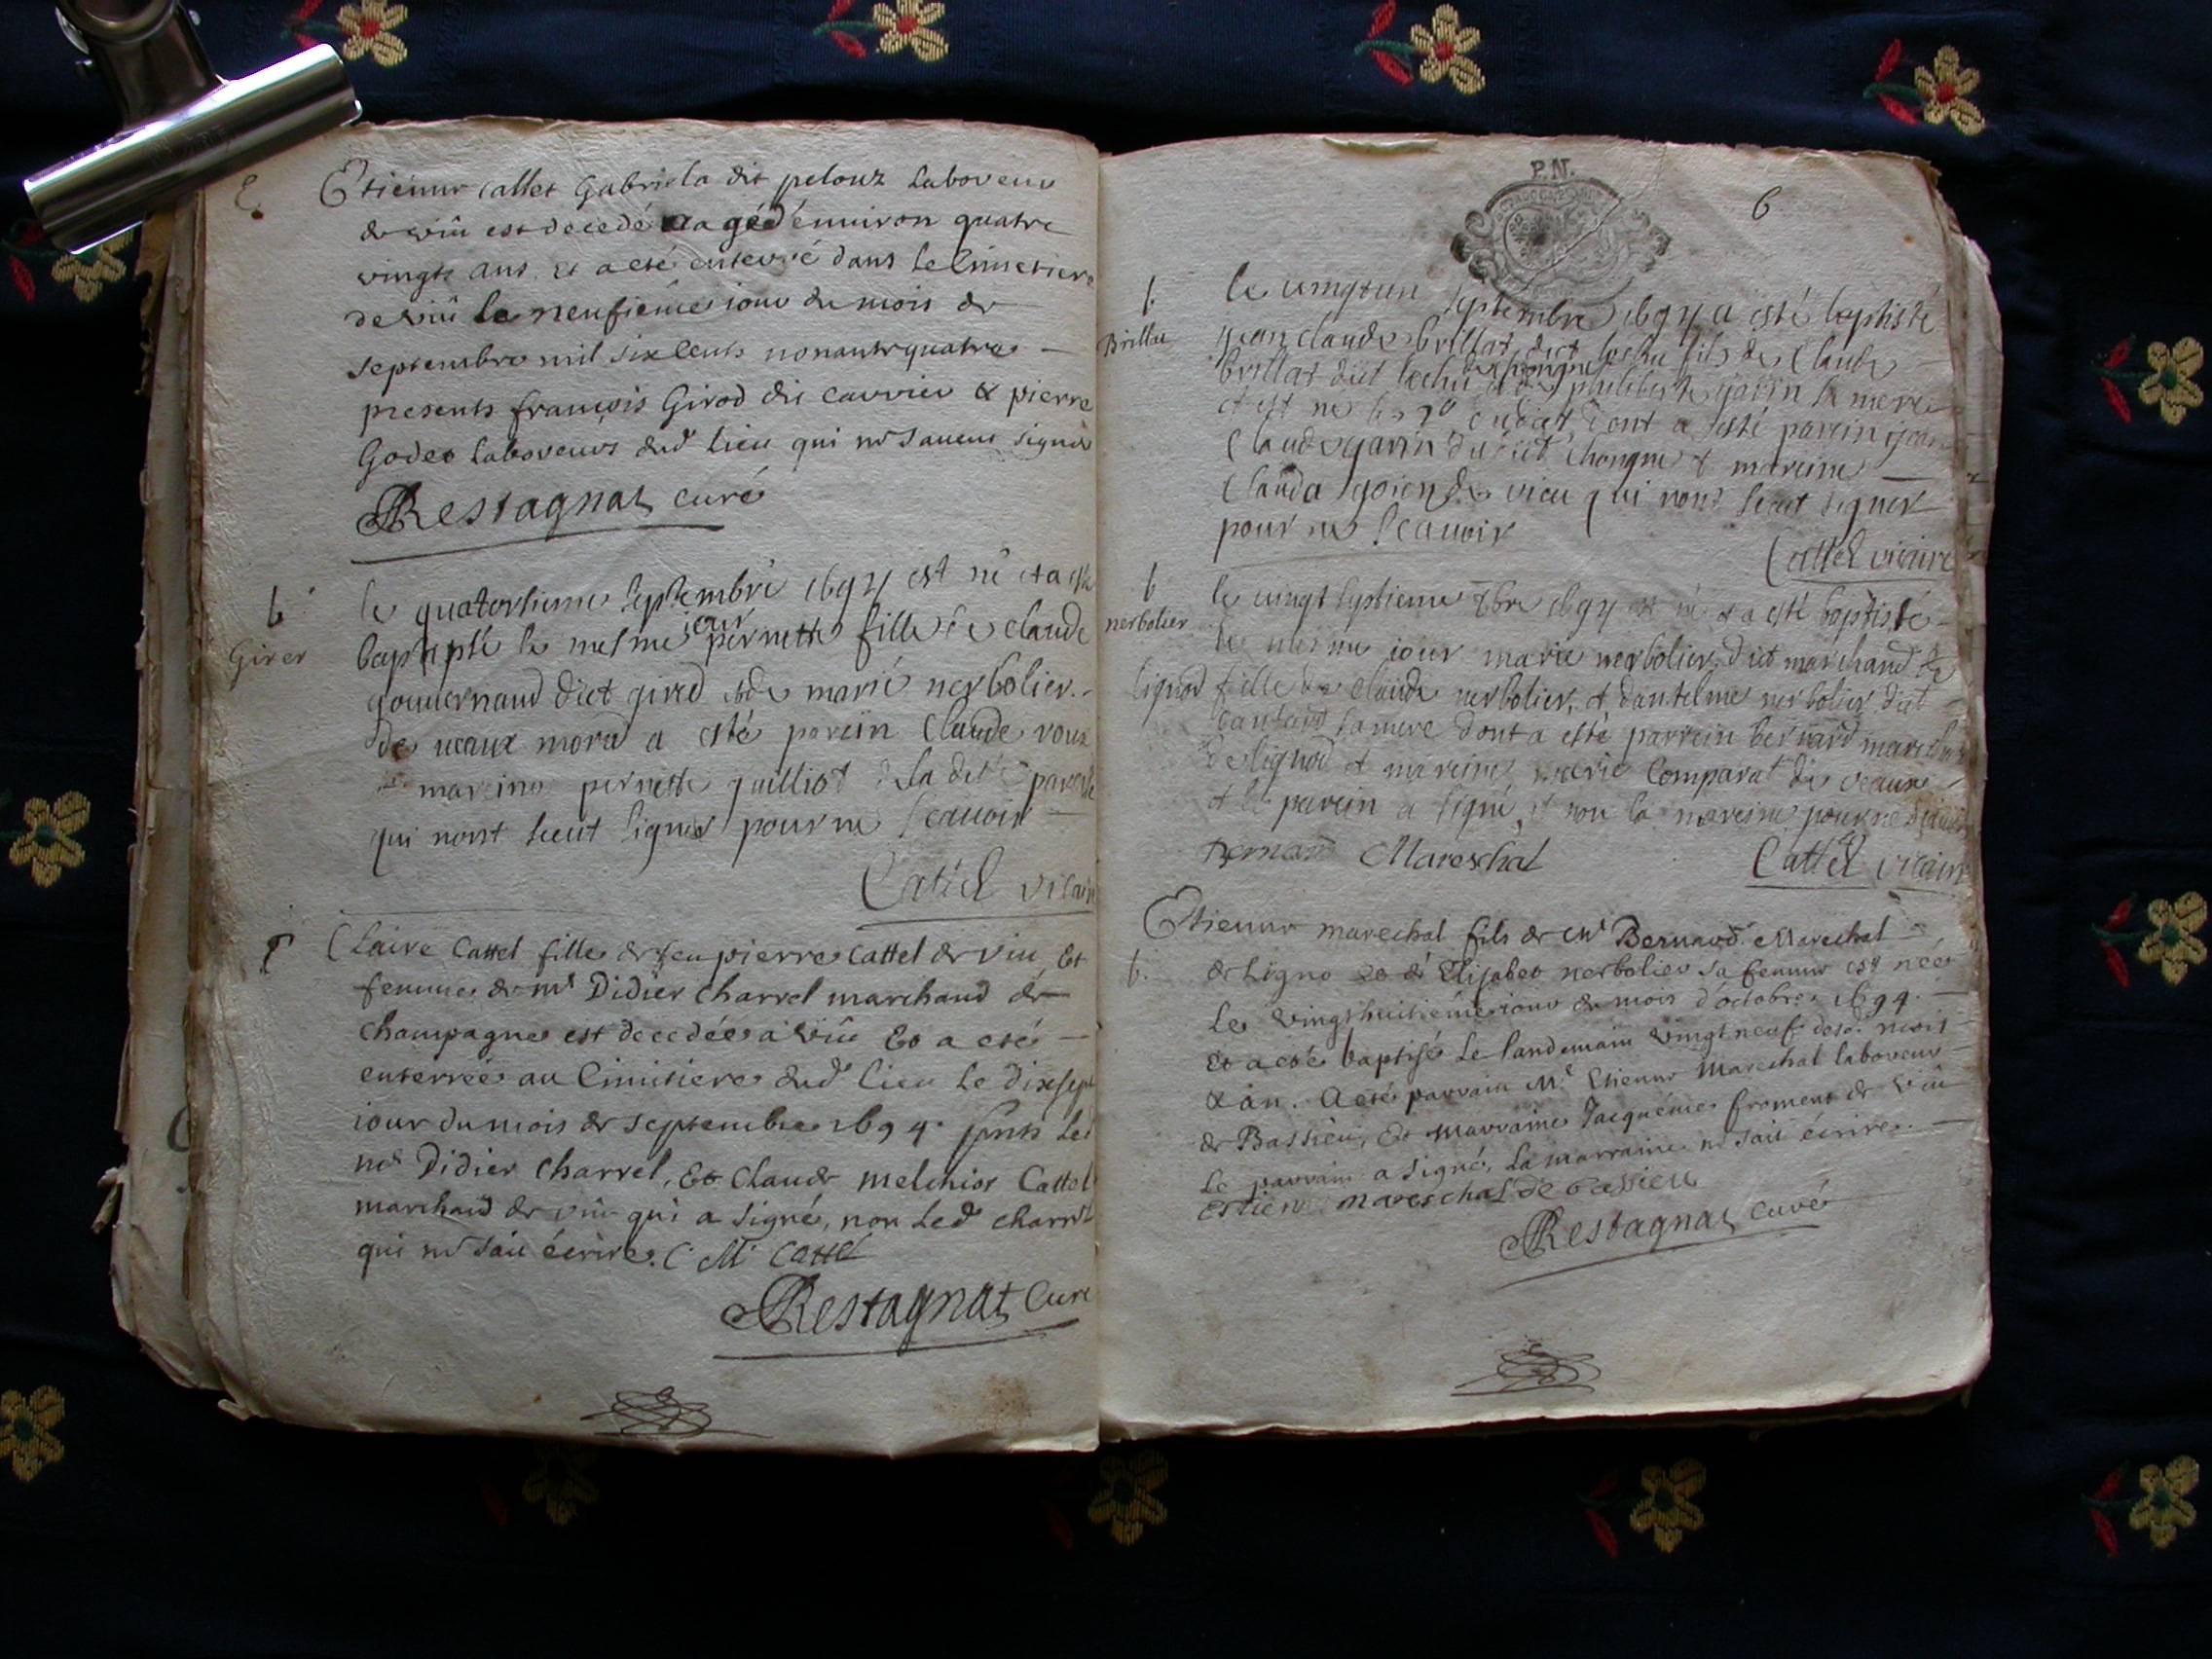 Etienne callet Gabriela dit pelouz laboveur
de viû est decedé aagé d'environ quatre
vingts ans et a esté enterré dans le Cimetiere
de viû le neufiéme iour du mois de
septembre mil six cents nonantequatre
presents françois Girod dit cavvier & pierre
Godet laboveurs dud lieu qui ne savent signer
Restagnat curé
b
Girer
le quatorsieme septembre 1694 est né et a esté
baptisté le mesme iour pernette fille de claude
gouvernaud dict girod et de marie nerbolier
de veaux mora a esté parein Claude roux
mareine pernette guilliot de la dite
qui nont sceut signer pour ne scauoir
Cattel vicaire
Claire Cattel fille de feu pierre Cattel de viu Et
femme de mr Didier Charrel marchand de
champagne est decedée a viû Et a esté
enterrée au Cimitiere dud lieu le dixsept
iour du mois de septembre 1694. led
Didier Charrel, Et Claude melchior Cattel
marchand de viû qui a signé, non led charrel
qui ne sait écrire. C M Cattel
Restagnat Curé
P.N.
6
b
Brillat
le vingtun septembre 1694 a esté baptisté
jean claude brillat dict fils de Claude
brillat dict et de philiberte garin sa mere
et est né dont a esté parein jean
Claude garin dict et mareine
Clauda de vieu qui nont sceut signer
pour ne scauoir
Cattel vicaire
b
nerbolier
le vingt septieme 7bre 1694 est né et a esté baptisté
le mesme iour marie nerbolier dict marchand de
lignod fille de claude nerbolier, et dantelme nerbolier dict
sa mere dont a esté parrein bernard mareschal
de lignod et mareine marie Comparat de veaux
et le parein a signé, et non la mareine pour ne
Bernard Mareschal
Cattel vicaire
Etienne marechal fils de Mr Bernard Marechal
b.
de Ligno Elisabet nerbolier sa femme est née
le vingthuitiéme iour du mois d'octobre 1694.
Et a esté baptisé le landemain vingtneuf desd. mois
& an. A esté parrain Mr. Etienne Marechal laboveur
de Bassieu, Et marraine Jacquéme froment de viû
Le parrain a signé, La marraine ne sait écrire.
Estiene mareschal de bassieu
Restagnat curé